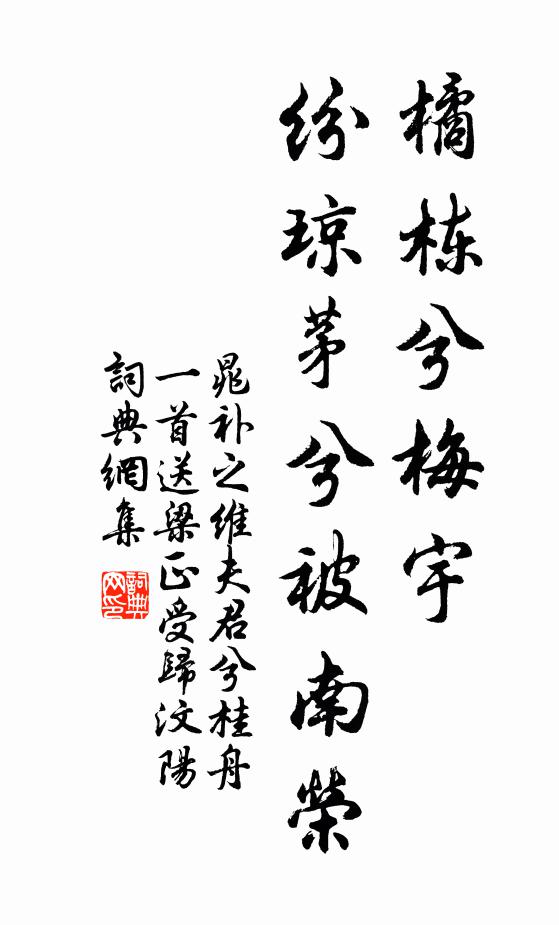 橘栋兮梅宇
纷琼茅兮被南榮
晁补之維夫君兮桂舟
一首送梁正受歸汶陽
詞典網集
詞典网印